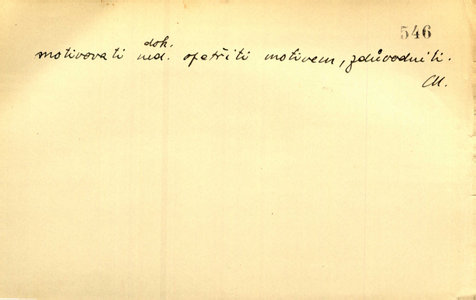 546
dok.
motivovati ned. opatřiti motivem, zdůvodniti.
M.